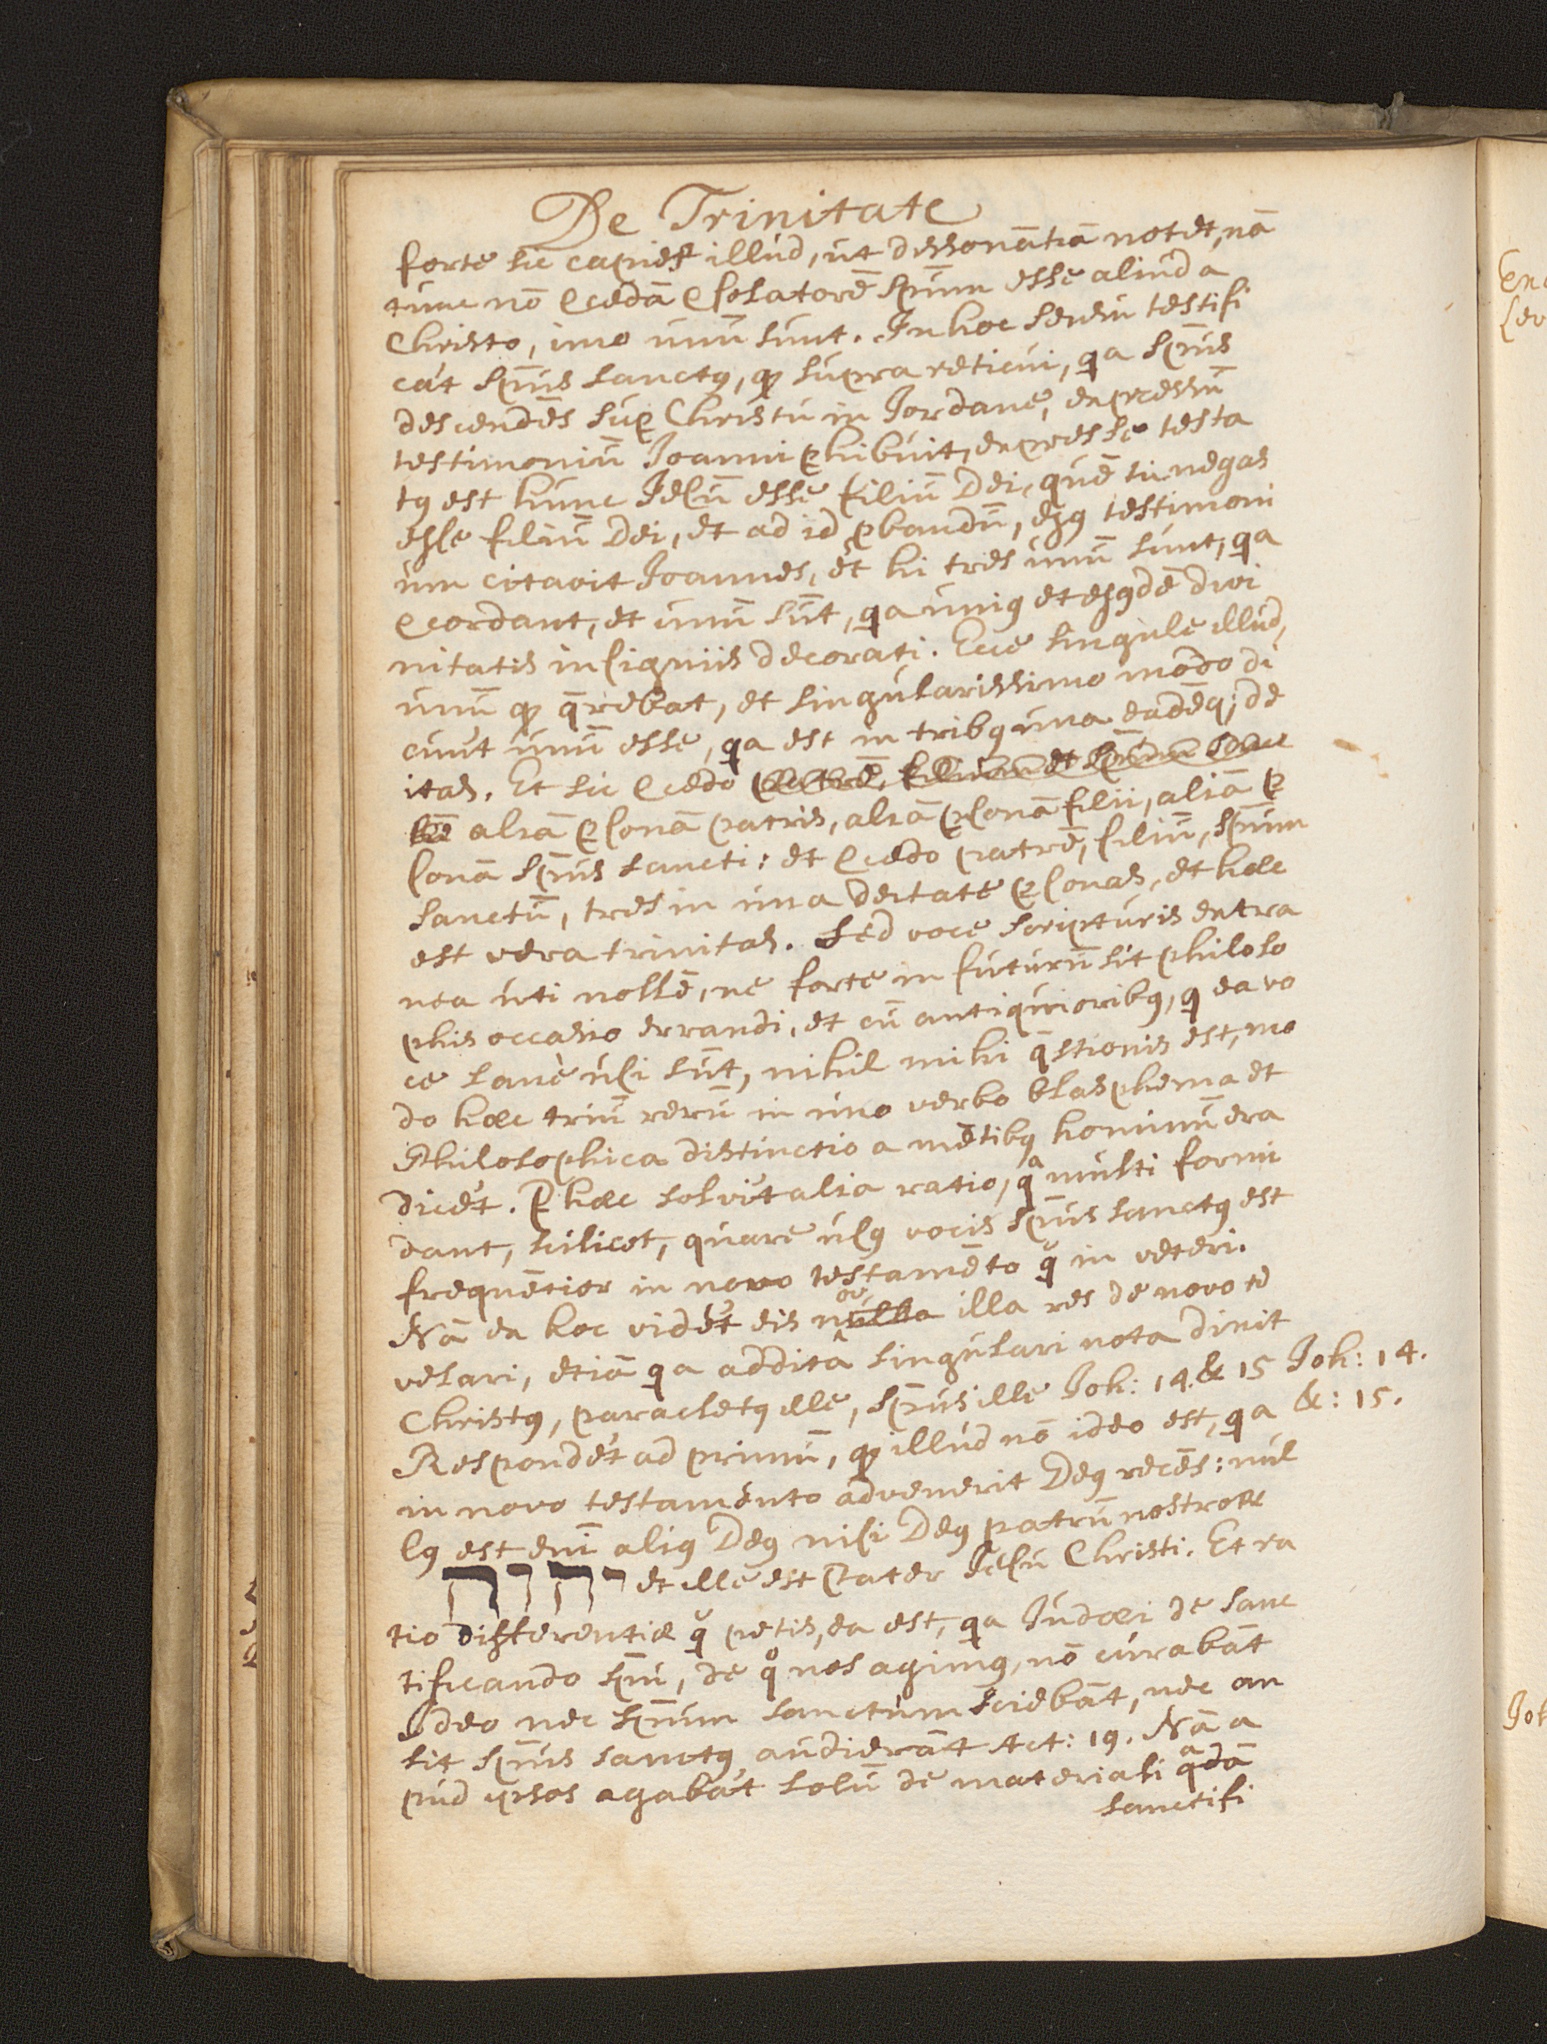 De Trinitate
forte sic capies illud, ut dissonātiā notet, nā
tunc nō ꝯcedā ꝯsolatorē spūm esse aliud a
Christo, imo unū sunt. In hoc sensu testifi
cat̃ spūs sanctꝰ, ꝙ supra reticui, qa spūs
descendēs suꝑ Christū in Jordane, expressū
testimoniū Joanni ꝑhibuit, expresse testa
tꝰ est hunc Jesū esse filiū Dei, quē tu negas
esse filiū Dei, et ad id ꝓbandū, ejꝰ testimoni
um citavit Joannes, et hi tres unū sunt, qa
ꝯcordant, et unū sūt, qa uniꝰ et ejꝰdē divi
nitatis insigniis decorati. Ecce singule illud,
unū ꝙ q̄rebat, et singularissimo modo di
cunt̃ unū esse, qa est in tribꝰ una eadēq; de
itas. Et sic ꝯcedo patrē, filium et spūm sanc
tū aliā ꝑsonā patris, aliā ꝑsonā filii, aliā ꝑ
sonā spūs sancti: et ꝯcedo patrē, filiū, spūm
sanctū, tres in una deitate ꝑsonas, et hæc
est vera trinitas. Sed voce scripturis extra
nea uti nollē, ne forte in futurū sit philoso
phis occasio errandi, et cū antiquioribꝰ, q ea vo
ce sane usi sūt, nihil mihi q̄stionis est, mo
do hæc triū rerū in uno verbo blasphema et
Philosophica distinctio a mētibꝰ hominū era
dicet̃. Ꝑ hæc solvit̃ alia ratio, qᵃ multi formi
dant, scilicet, quare usꝰ vocis spūs sanctꝰ est
frequētior in novo testamēto q̃ in veteri.
Nā ex hoc videt̃ eis nulla ov illa res de novo re
velari, etiā qa addita singulari nota dixit
Christꝰ, paracletꝰ ille, spūs ille Joh: 14. & 15 Joh: 14.
Respondet̃ ad primū, ꝙ illud nō ideo est, qa &: 15.
in novo testamento advenerit Deꝰ recēs: nul
lꝰ est enī aliꝰ Deꝰ nisi Deꝰ patrū nostroꝝ
יהוה et ille est Pater Jesu Christi. Et ra
tio differentiæ q̃ petis, ea est, qa Judæi de sanc
tificando spū, de qº nos agimꝰ, nō curabāt
Ideo nec spūm sanctum sciebāt, nec an
sit spūs sanctꝰ audierāt Act: 19. Nā a
pud ipsos agabat̃ solū de materiali qᵃdā
sanctifi